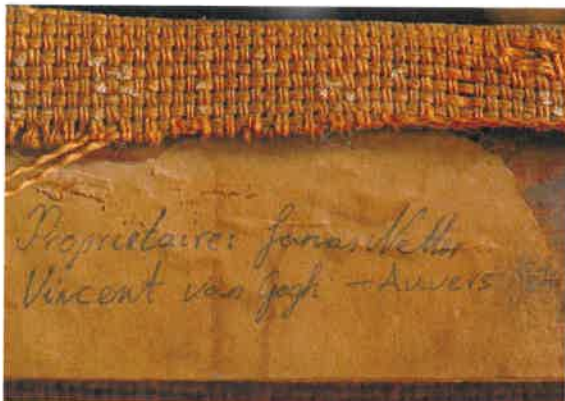 Propriétaire: Jonas Netter
Vincent van Gogh - Auvers